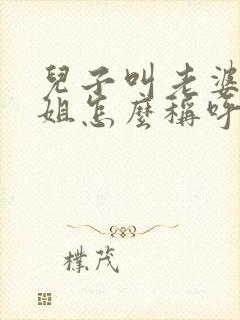 兒子叫老婆
姐怎麼稱呼
樸茂